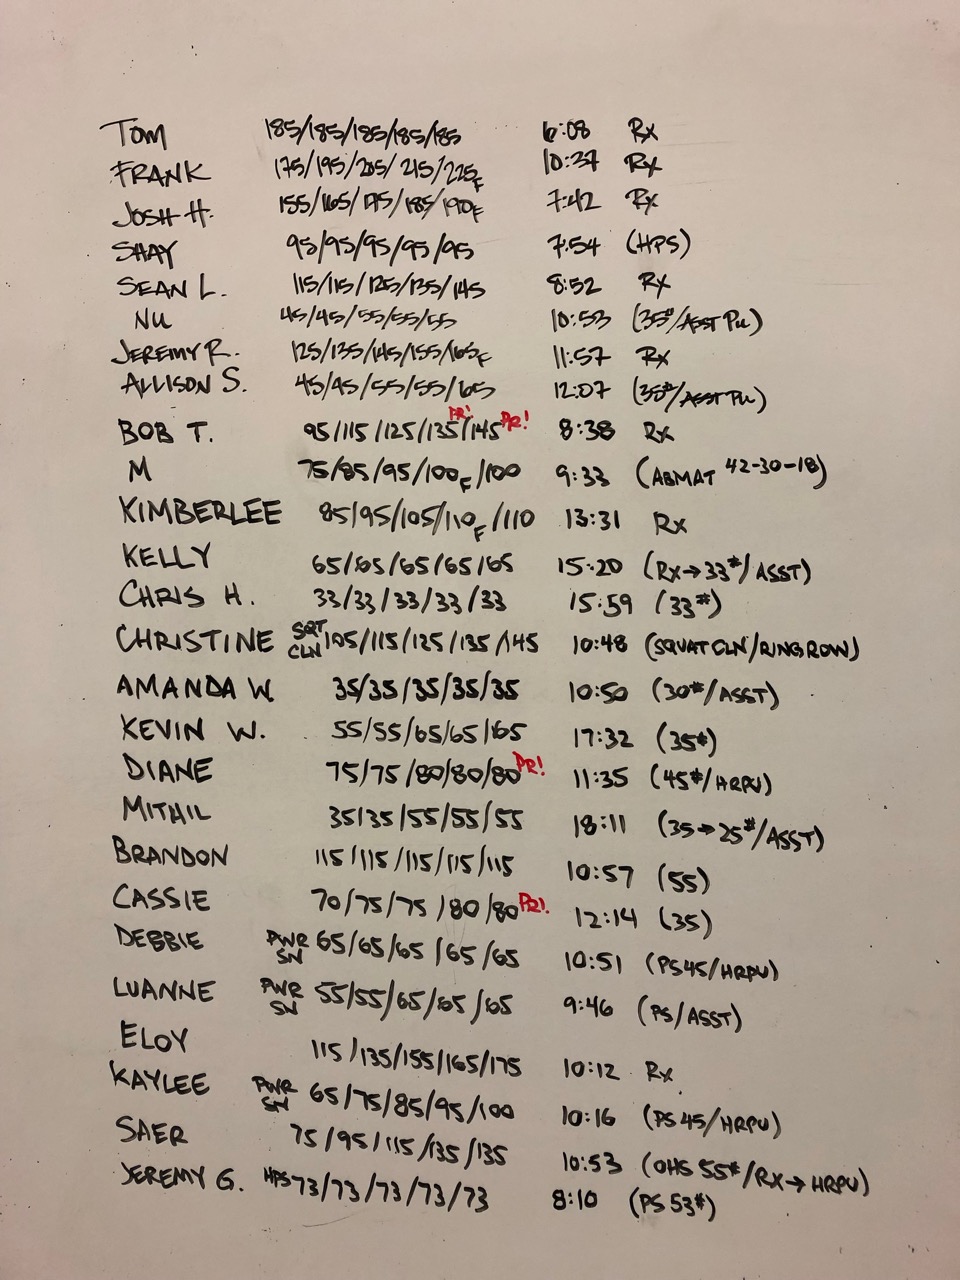 TOM 185/185/185/185/185 6:08 Rx
FRANK 175/195/205/215/225F 10:37 Rx
JOSH H. 155/165/175/185/190F 7:42 Rx
SHAY 95/95/95/95/95 7:54 (HPS)
SEAN L. 115/115/125/135/145 8:52 Rx
NU 45/45/55/55/55 10:53 (35#/ASST PU)
JEREMY R. 125/135/145/155/165F 11:57 Rx
ALLISON S. 45/45/55/55/65 12:07 (35#/ASST PU)
BOB T. 95/115/125/135 PR!/145 PR! 8:38 Rx
M 75/85/95/100F/100 9:33 (ABMAT 42-30-18)
KIMBERLEE 85/95/105/110F/110 13:31 Rx
KELLY 65/65/65/65/65 15:20 (RX→33#/ASST)
CHRIS H. 33/33/33/33/33 15:59 (33#)
CHRISTINE SQT CLN 105/115/125/135/145 10:48 (SQUAT CLN/RING ROW)
AMANDA W. 35/35/35/35/35 10:50 (30#/ASST)
KEVIN W. 55/55/65/65/65 17:32 (35#)
DIANE 75/75/80/80/80 PR! 11:35 (45#/HRPU)
MITHIL 35/35/55/55/55 18:11 (35→25#/ASST)
BRANDON 115/115/115/115/115 10:57 (55)
CASSIE 70/75/75/80/80 PR! 12:14 (35)
DEBBIE PWR SN 65/65/65/65/65 10:51 (PS45/HRPU)
LUANNE PWR SN 55/55/65/65/65 9:46 (PS/ASST)
ELOY 115/135/155/165/175 10:12 Rx
KAYLEE PWR SN 65/75/85/95/100 10:16 (PS45/HRPU)
SAER 75/95/115/135/135 10:53 (OHS 55#/RX→HRPU)
JEREMY G. HPS 73/73/73/73/73 8:10 (PS 53#)